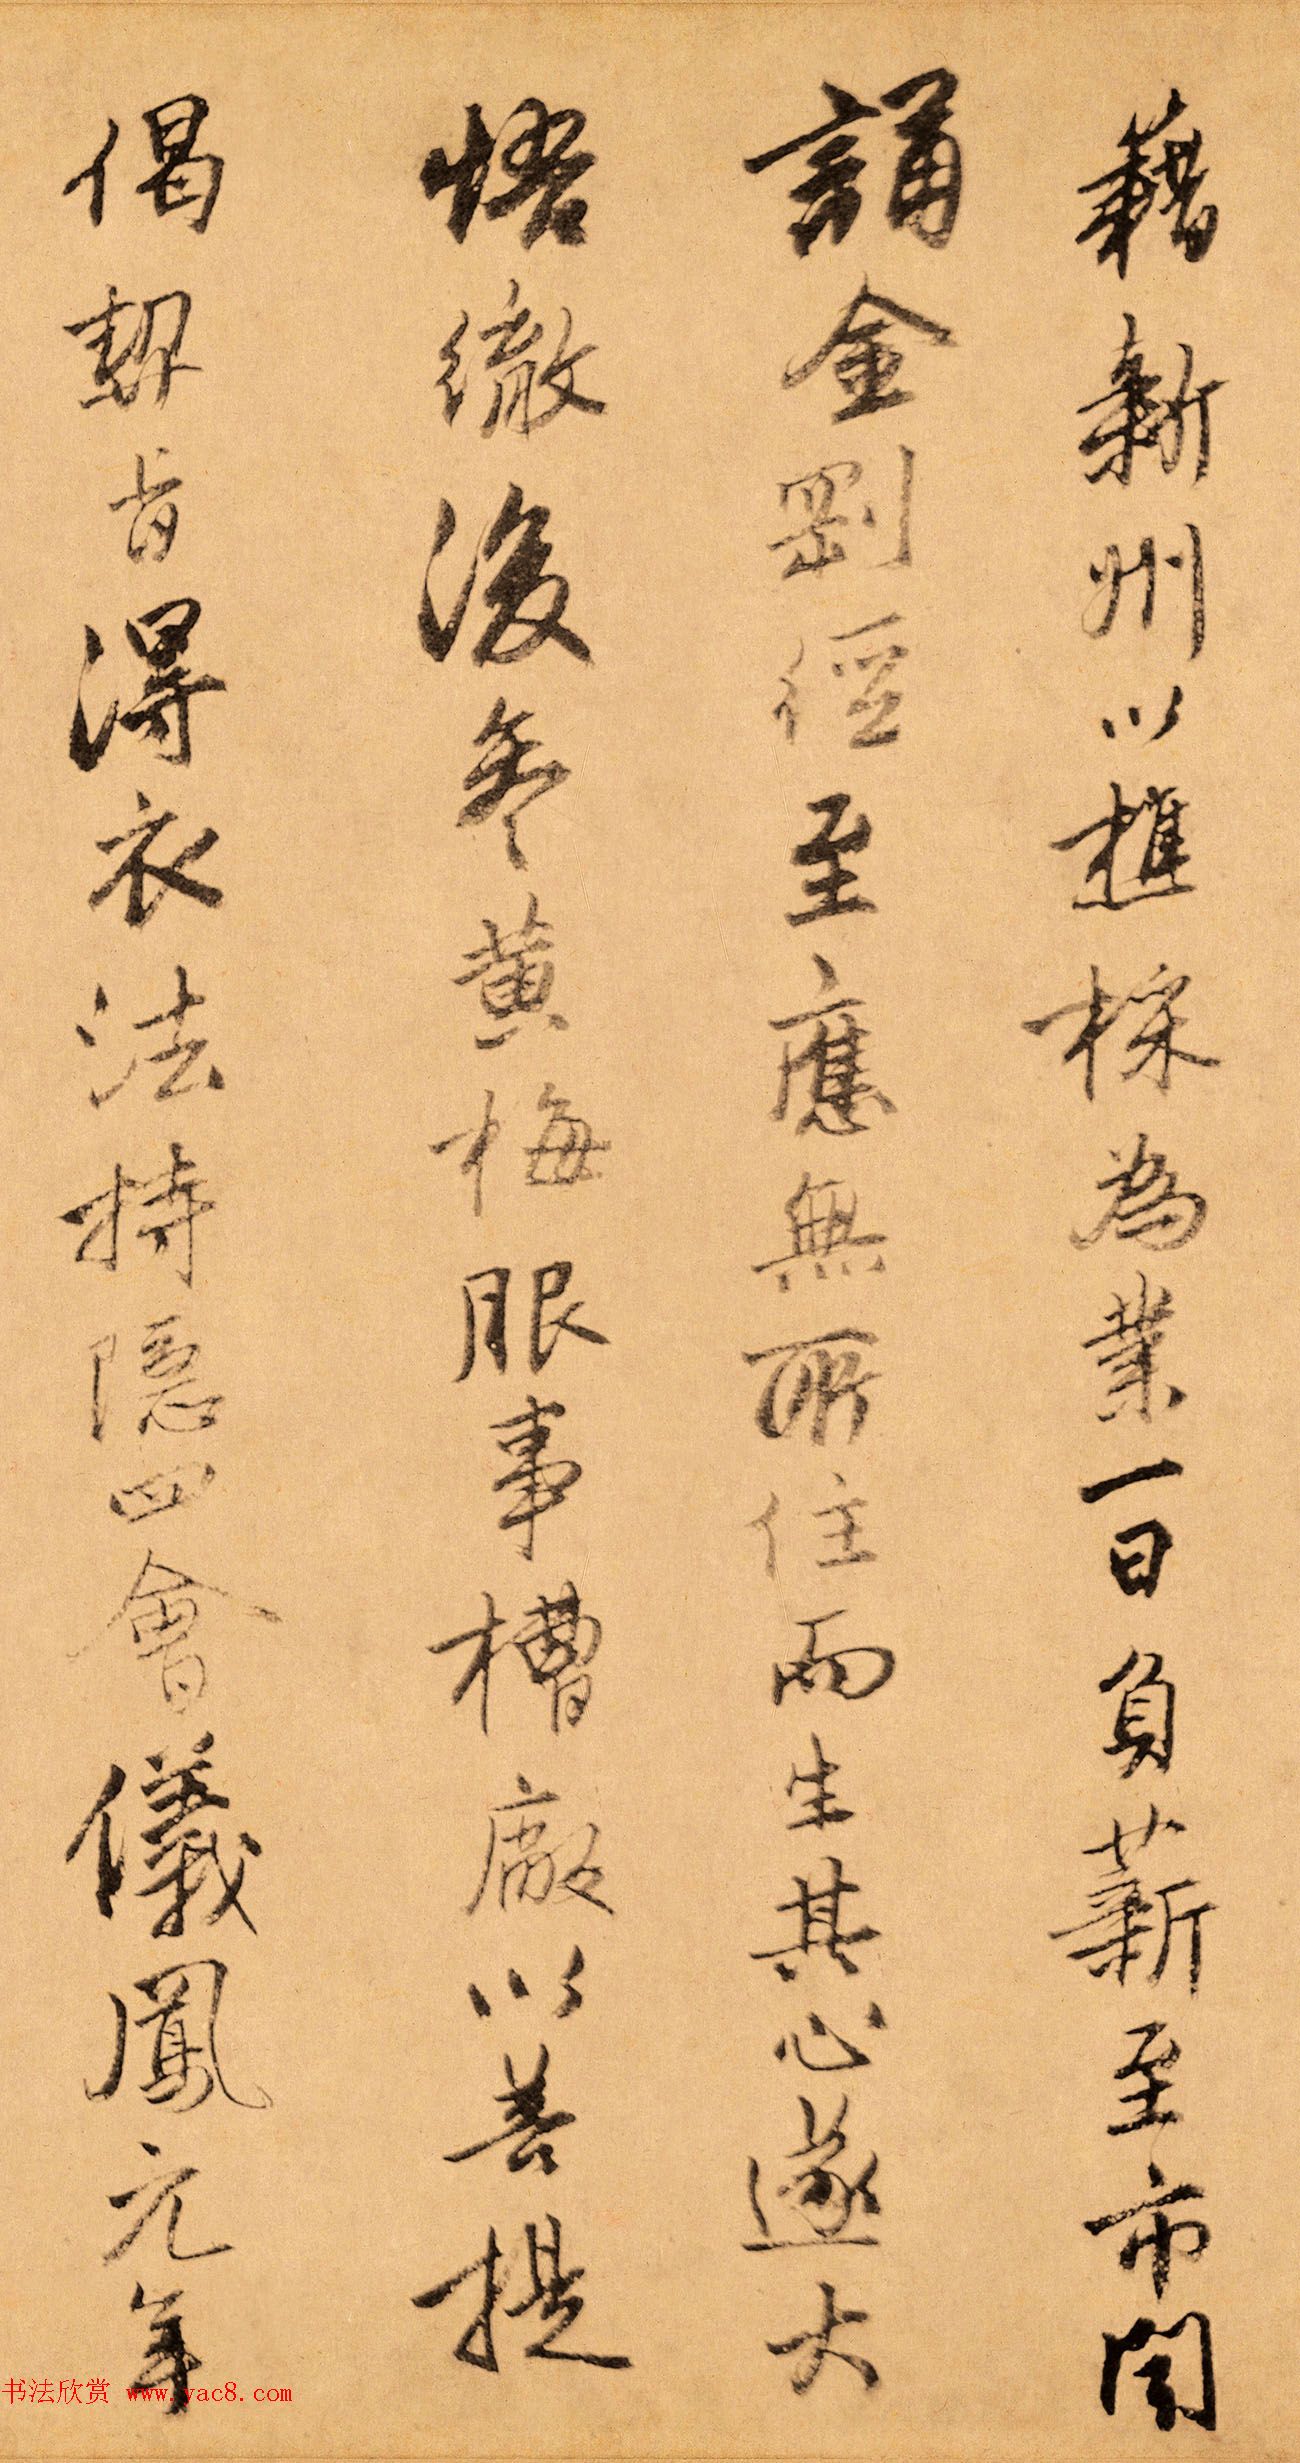 藉新州以樵採為業一日負薪至市聞
誦金剛經至應無所住而生其心遂大
悟徹後參黃梅服事槽廠以菩提
偈契旨得衣法持隱四會儀鳳元年
书法欣赏 www.yac8.com